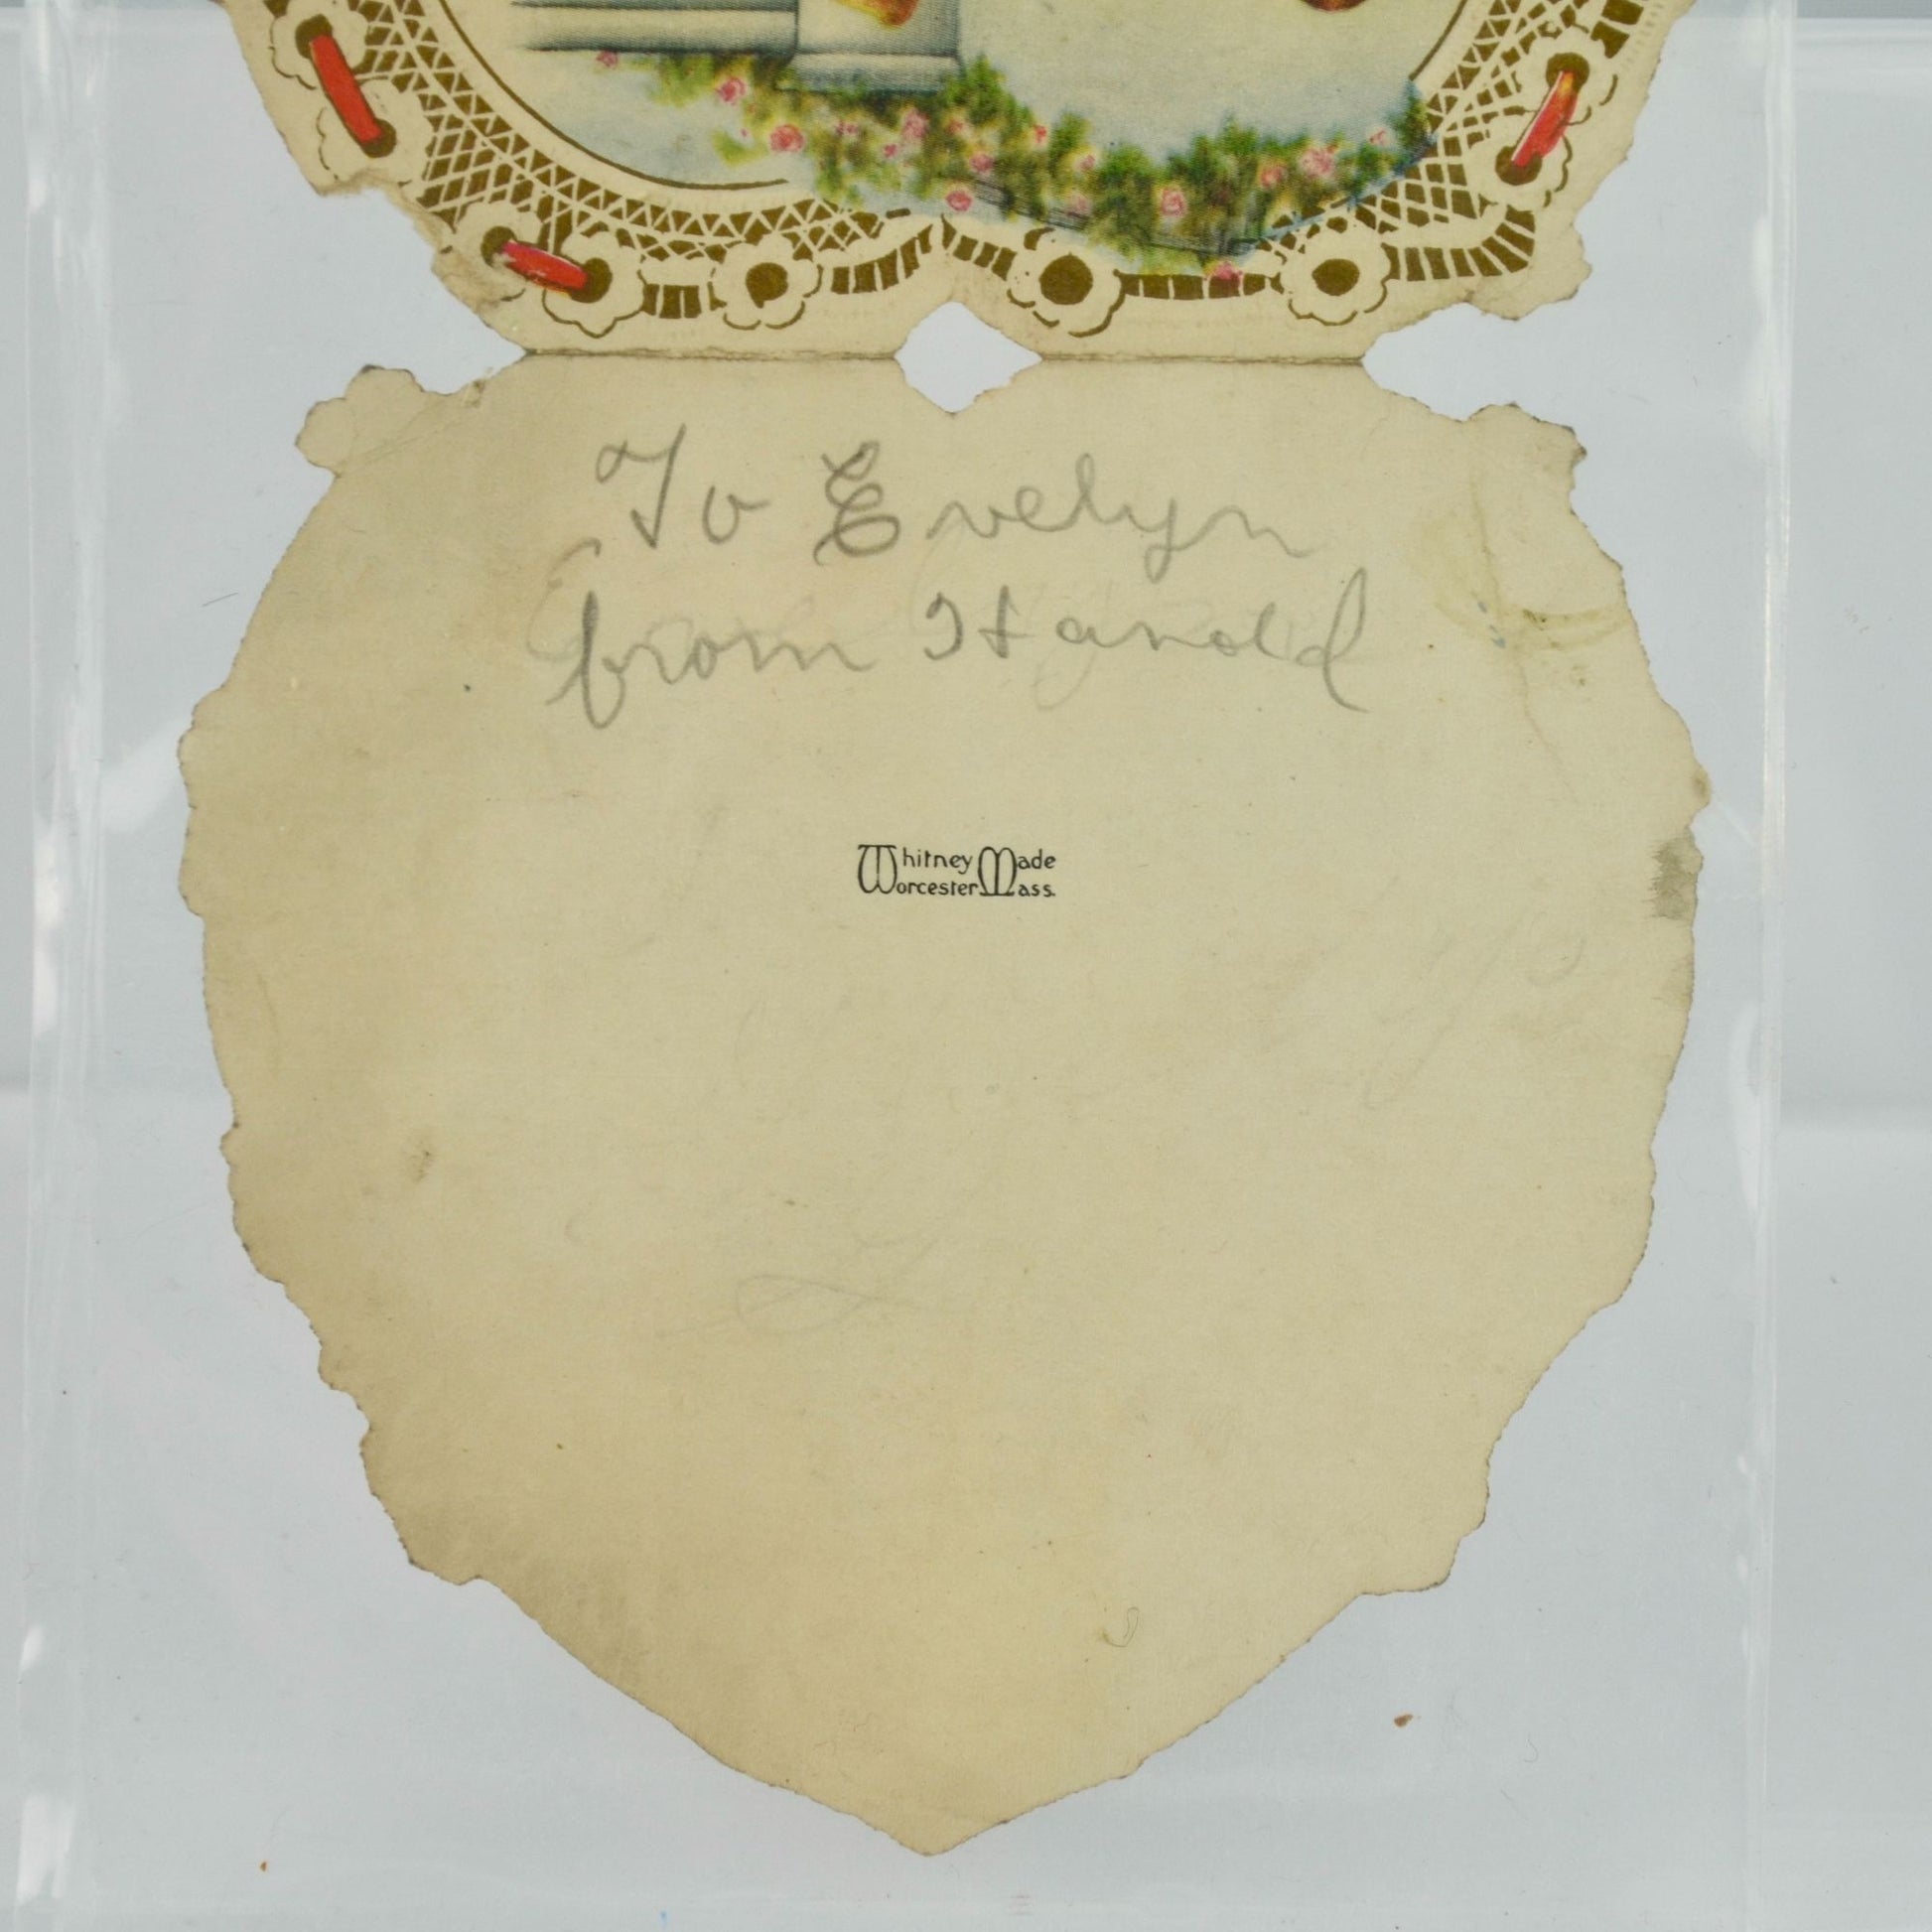 To Evelyn
from Harold
Whitney Made
Worcester Mass.